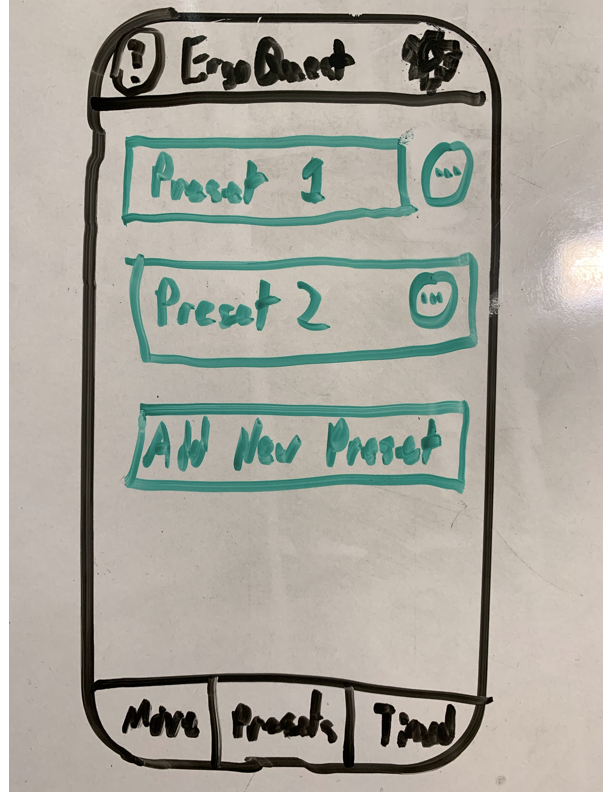 ! ErgoQuest
Preset 1 ...
Preset 2 ...
Add New Preset
Move Presets Timed